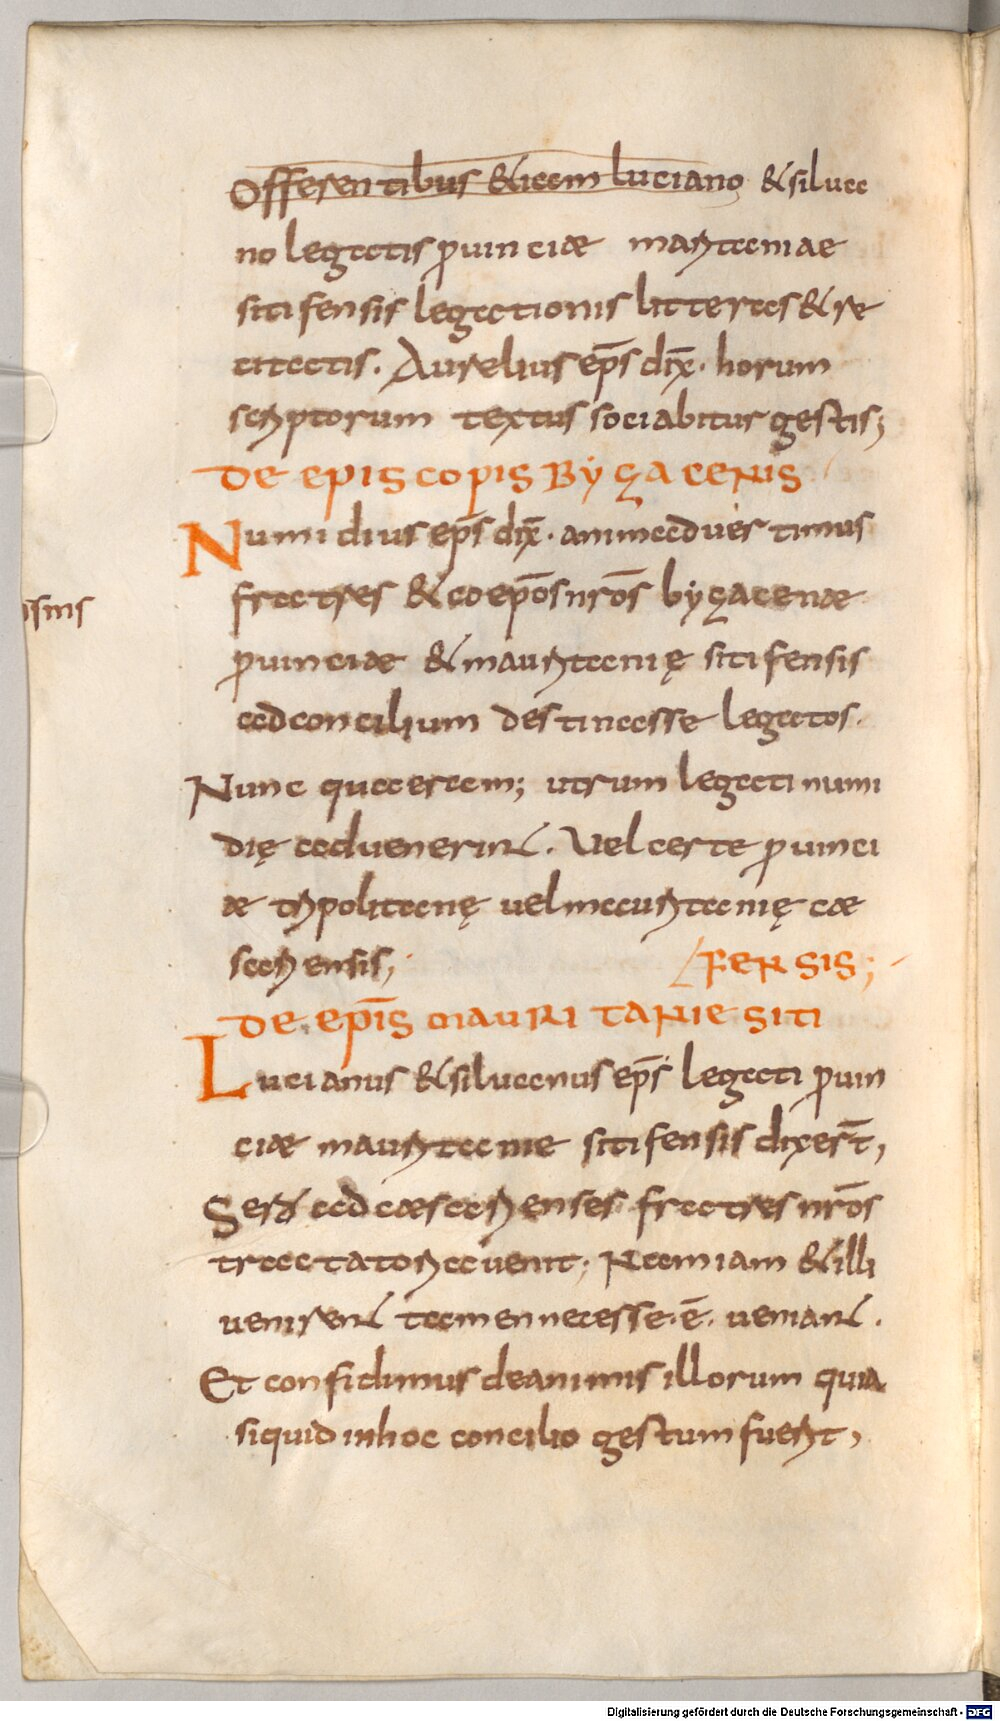 Offerentibus & iam luciano & silua
no legatis ꝓuinciæ maritaniae
sitifensis legationis litteras & re
citatis. Aurelius ep̄s dix̄. horum
scriptorum textus sociabitur gestis;
DE EPISCOPIS BYÇACENIS
Numidius ep̄s dix̄. animaduertimus
fratres & coepōs nrōs byçacenæ
ꝓuinciæ & mauritanię sitifensis
ad concilium destinasse legatos.
Nunc quaeram; utrum legati numi
dię aduenerint. Vel certe ꝓuinci
æ tripolitanę uel mauritanię cæ
sariensis;
DE EPĪS MAURITANIE SITI
FENSIS;
Lucianus & siluanus ep̄s legati ꝓuin
ciæ mauritanie sitifensis dixer̄t,
Sero ad cæsarienses fratres nrōs
tractatoria uenit; Nam iam & illi
uenirent tamen necesse .ē. ueniant.
Et confidimus de animis illorum quia
siquid in hoc concilio gestum fuerit,
Digitalisierung gefördert durch die Deutsche Forschungsgemeinschaft - DFG